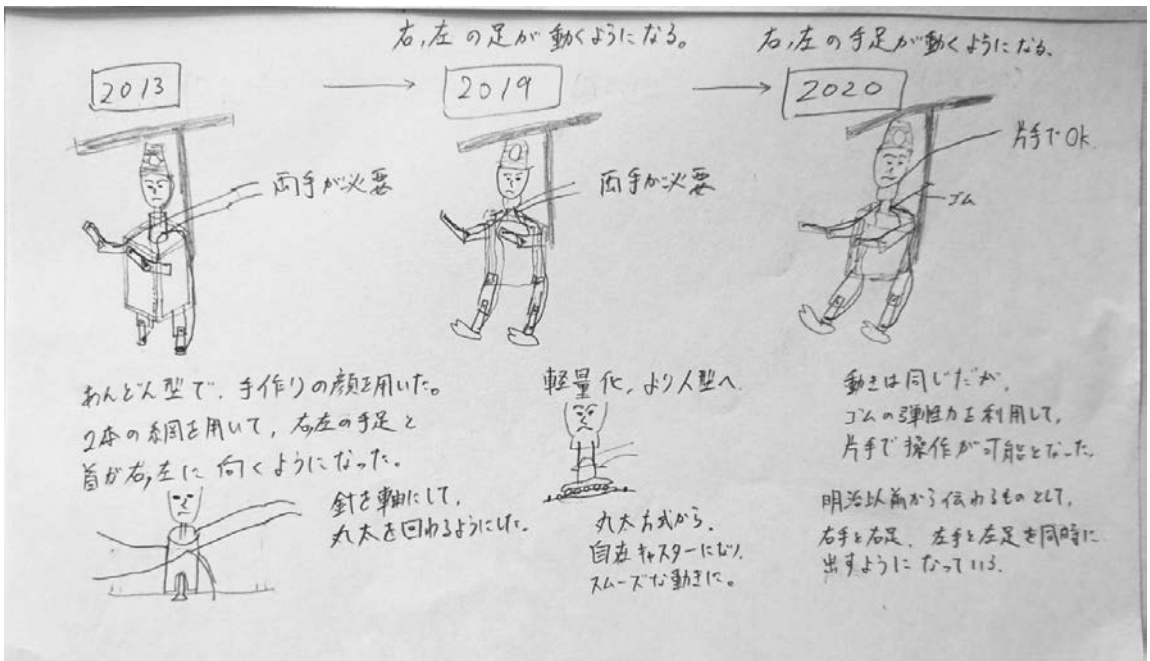 右,左の足が動くようになる。
右,左の手足が動くようになる、
2013
2019
2020
両手が必要
両手が必要
片手でOK
ゴム
あんどん型で、手作りの顔を用いた。
2本の綱を用いて、右,左の手足と
首が右,左に向くようになった。
針を軸にして、
丸太を回わるようにした。
軽量化、より人型へ
丸太方式から、
自在キャスターになり、
スムーズな動きに。
動きは同じだが、
ゴムの弾性力を利用して、
片手で操作が可能となった。
明治以前から伝わるものとして、
右手と右足、左手と左足を同時に
出すようになっている。